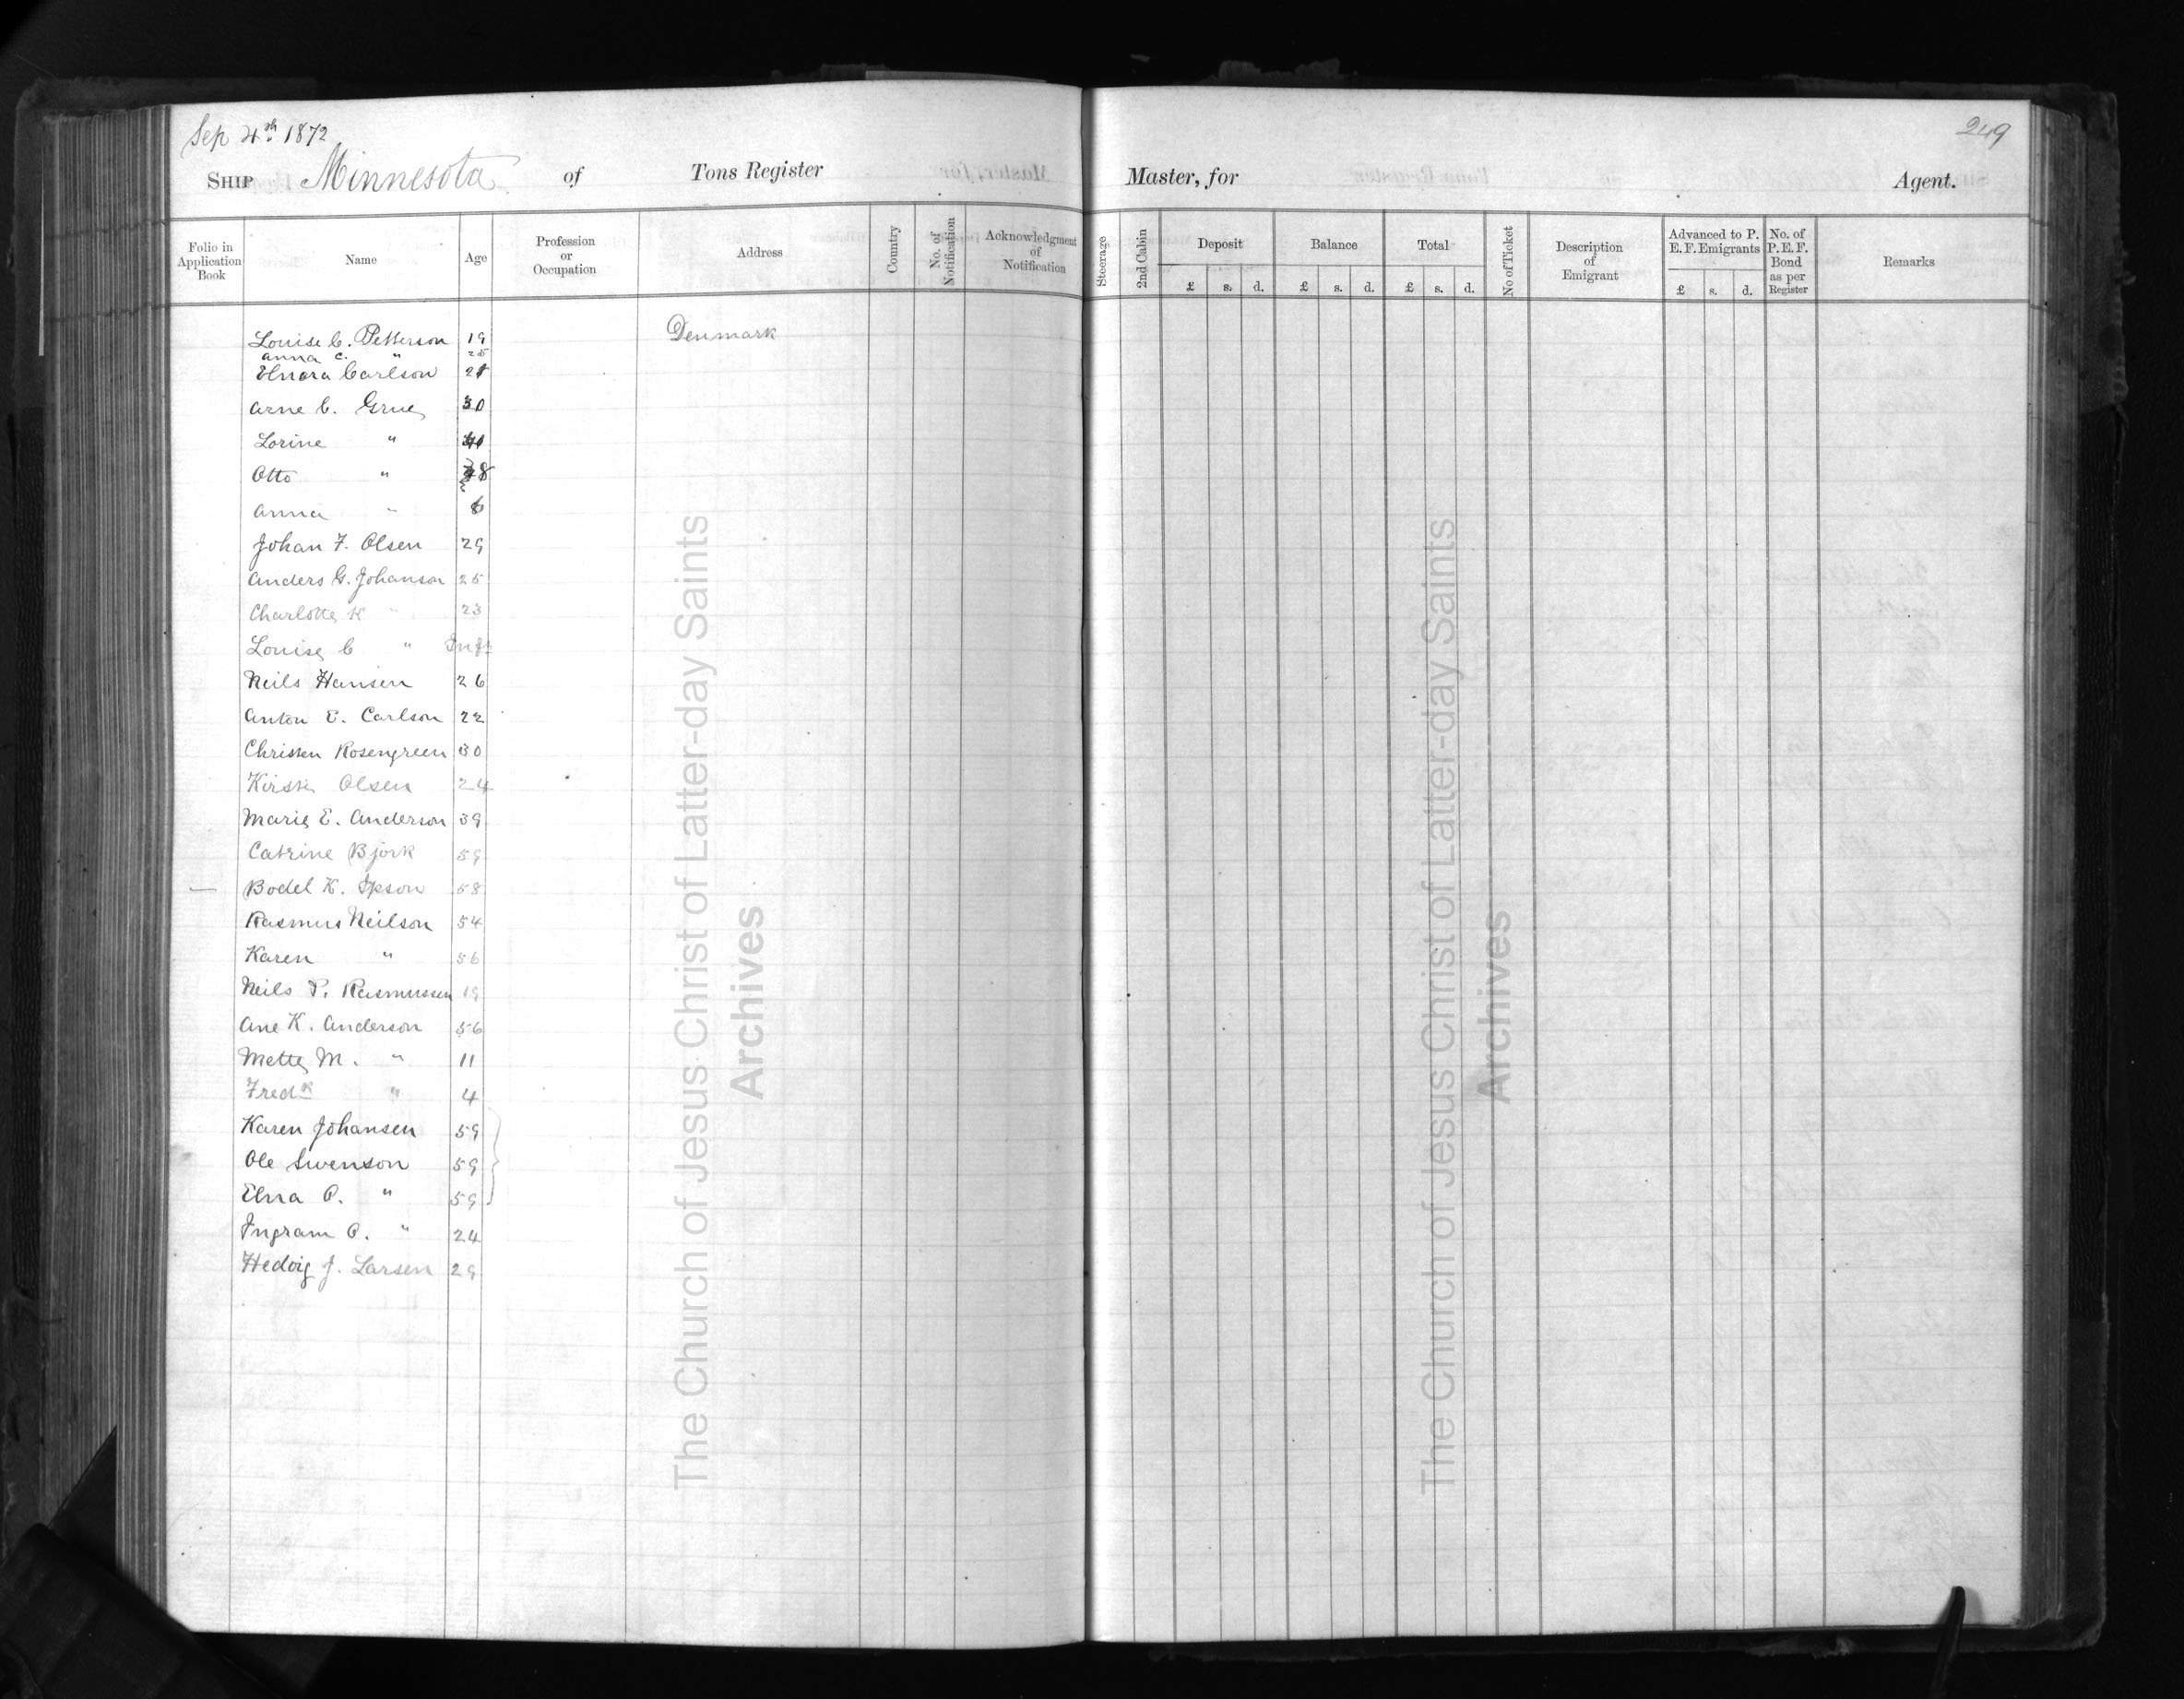 Sep 4th 1872
249
SHIP Minnesota of Tons Register Master, for Agent.
Folio in Application Book Name Age Profession or Occupation Address Country No. of Notification Acknowledgment of Notification Steerage 2nd Cabin Deposit £ s. d. Balance £ s. d. Total £ s. d. No of Ticket Description of Emigrant Advanced to P. E. F. Emigrants £ s. d. No. of P. E. F. Bond as per Register Remarks
Louise C. Petterson 19 Denmark
Anna C. " 25
Elnora Carlson 21
Arne C. Grue 30
Lorine "
Otto "
Anna " 6
Johan F. Olsen 29
Anders G. Johanson 25
Charlotte K " 23
Louise C " Inft
Neils Hansen 26
Anton E. Carlson 22
Christen Rosengreen 30
Kirste Olsen 24
Marie E. Anderson 39
Catrine Bjork 59
— Bodel K. Ipson 58
Rasmus Neilson 54
Karen " 56
Neils P. Rasmussen 19
Ane K. Anderson 56
Mette M. " 11
Fredk " 4
Karen Johansen 59
Ole Swenson 59
Elna O. " 59
Ingram O. " 24
Hedvig J. Larsen 29
The Church of Jesus Christ of Latter-day Saints
Archives
The Church of Jesus Christ of Latter-day Saints
Archives